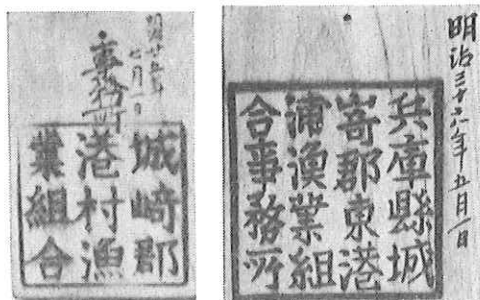 明治三十六年五月一日
兵庫縣城
嵜郡東港
浦漁業組
合事務所
明治廿五年
七月一日
事務所
城崎郡
港村漁
業組合